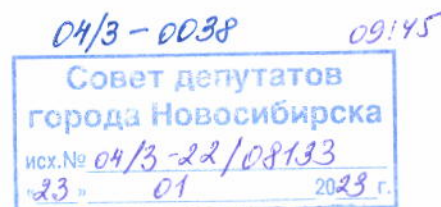 04/3-0038 09:45
Совет депутатов
города Новосибирска
исх.№ 04/3-22/08133
"23" 01 2023 г.